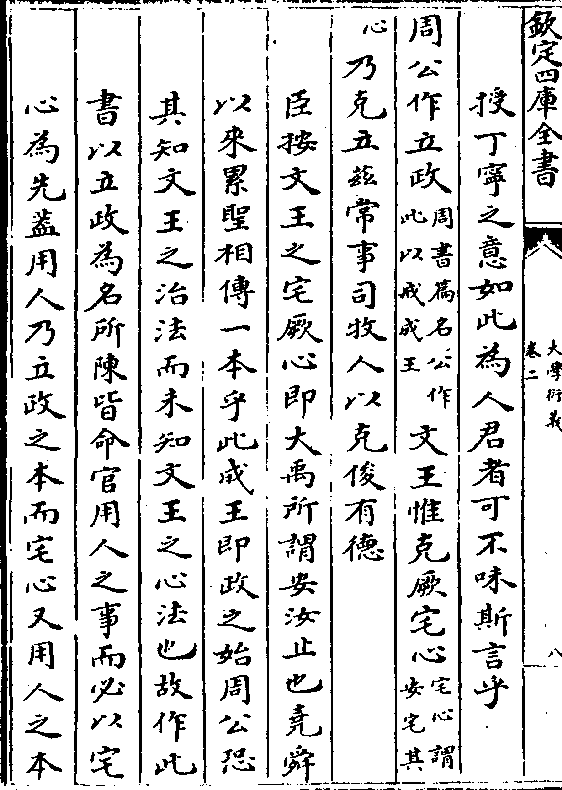 欽定四庫全書
大學衍義
卷二
八
授丁寧之意如此為人君者可不味斯言乎
周公作立政周書篇名公作此以戒成王文王惟克厥宅心宅心謂安宅其
心乃克立茲常事司牧人以克俊有德
臣按文王之宅厥心即大禹所謂安汝止也堯舜
以來累聖相傳一本乎此成王即政之始周公恐
其知文王之治法而未知文王之心法也故作此
書以立政為名所陳皆命官用人之事而必以宅
心為先蓋用人乃立政之本而宅心又用人之本